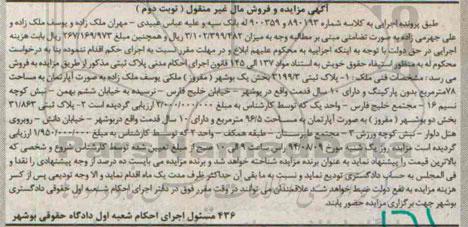 آگهی مزایده و فروش مال غیر منقول ( نوبت دوم )
طبق پرونده اجرایی به کلاسه شماره ۸۹۰۱۹۳ و ۹۰۰۳۵۹ له بانک سپه و علیه عباس عبیدی - مهران ملک زاده و یوسف ملک زاده و
علی جهرمی زاده به صورت تضامنی مبنی بر مطالبه وجه به میزان ۳/۱۰۲/۳۹۹/۴۸۲ ریال و همچنین مبلغ ۲۶۷/۱۶۹/۹۷۳ ریال بابت هزینه
اجرایی در حق دولت با توجه به اینکه اجراییه به محکوم علیهم ابلاغ و در مهلت مقرر نسبت به اجرای حکم اقدام ننموده بنا به درخواست
محکوم له به منظور استیفاء حقوق خویش به استناد مواد ۱۳۷ الی ۱۴۵ قانون اجرای احکام مدنی پلاک ثبتی مذکور از طریق مزایده به فروش
می رسد : مشخصات فنی ملک : ۱- پلاک ثبتی ۳۱۹۹/۳ بخش یک بوشهر ( مفروز ) ملکی یوسف ملک زاده به صورت آپارتمان به مساحت
۷۸مترمربع بدون پارکینگ و دارای ۱۰ سال قدمت واقع در بوشهر - خیابان خلیج فارس - نرسیده به خیابان ششم بهمن - نبش کوچه
نسیم ۱۶ - مجتمع خلیج فارس - واحد یک که توسط کارشناس به مبلغ ۲/۰۰۰/۰۰۰/۰۰۰ ارزیابی گردیده است ۲- پلاک ثبتی ۳۱/۸۶۳
بخش دو بوشهر ( مفروز ) به صورت آپارتمان به مساحت ۹۶/۵ مترمربع و دارای ۱۰ سال قدمت واقع دربوشهر - خیابان دانش - روبروی
هتل دلوار - نبش کوچه ورزش ۳ - مجتمع - طبقه همکف - واحد ۲ که توسط کارشناس به مبلغ ۱/۹۵۰/۰۰۰/۰۰۰ ارزیابی
گردیده است مزایده روز یک شنبه مورخ ۹۴/۰۸/۰۹ ساعت ۹ الی ۱۰ صبح از مبلغ تعیین شده توسط کارشناس شروع و شخصی که
بالاترین قیمت را پیشنهاد نماید به عنوان برنده مزایده شناخته خواهد شد و برنده مزایده می بایست ده درصد از وجه پیشنهادی را نقدا و
فی المجلس به حساب دادگستری تودیع نماید و نسبت به ما بقی آن حداکثر ظرف مدت یک ماه اقدام نماید و الا وجه تودیعی پس از کسر
هزینه مزایده به نفع دولت ضبط خواهد شد. علاقمندان می توانند در وقت مقرر فوق در دفتر اجرای احکام شعبه اول حقوقی دادگستری
بوشهر جهت برگزاری مزایده حضور یابند.
۴۳۶ مسئول اجرای احکام شعبه اول دادگاه حقوقی بوشهر